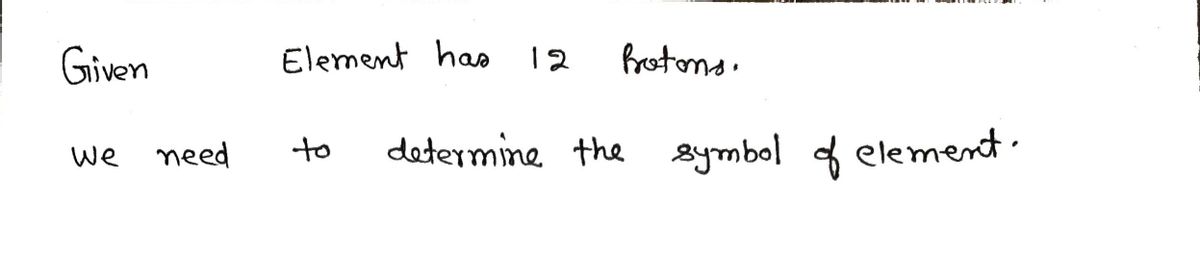 Given Element has 12 Protons.
we need to determine the symbol of element.